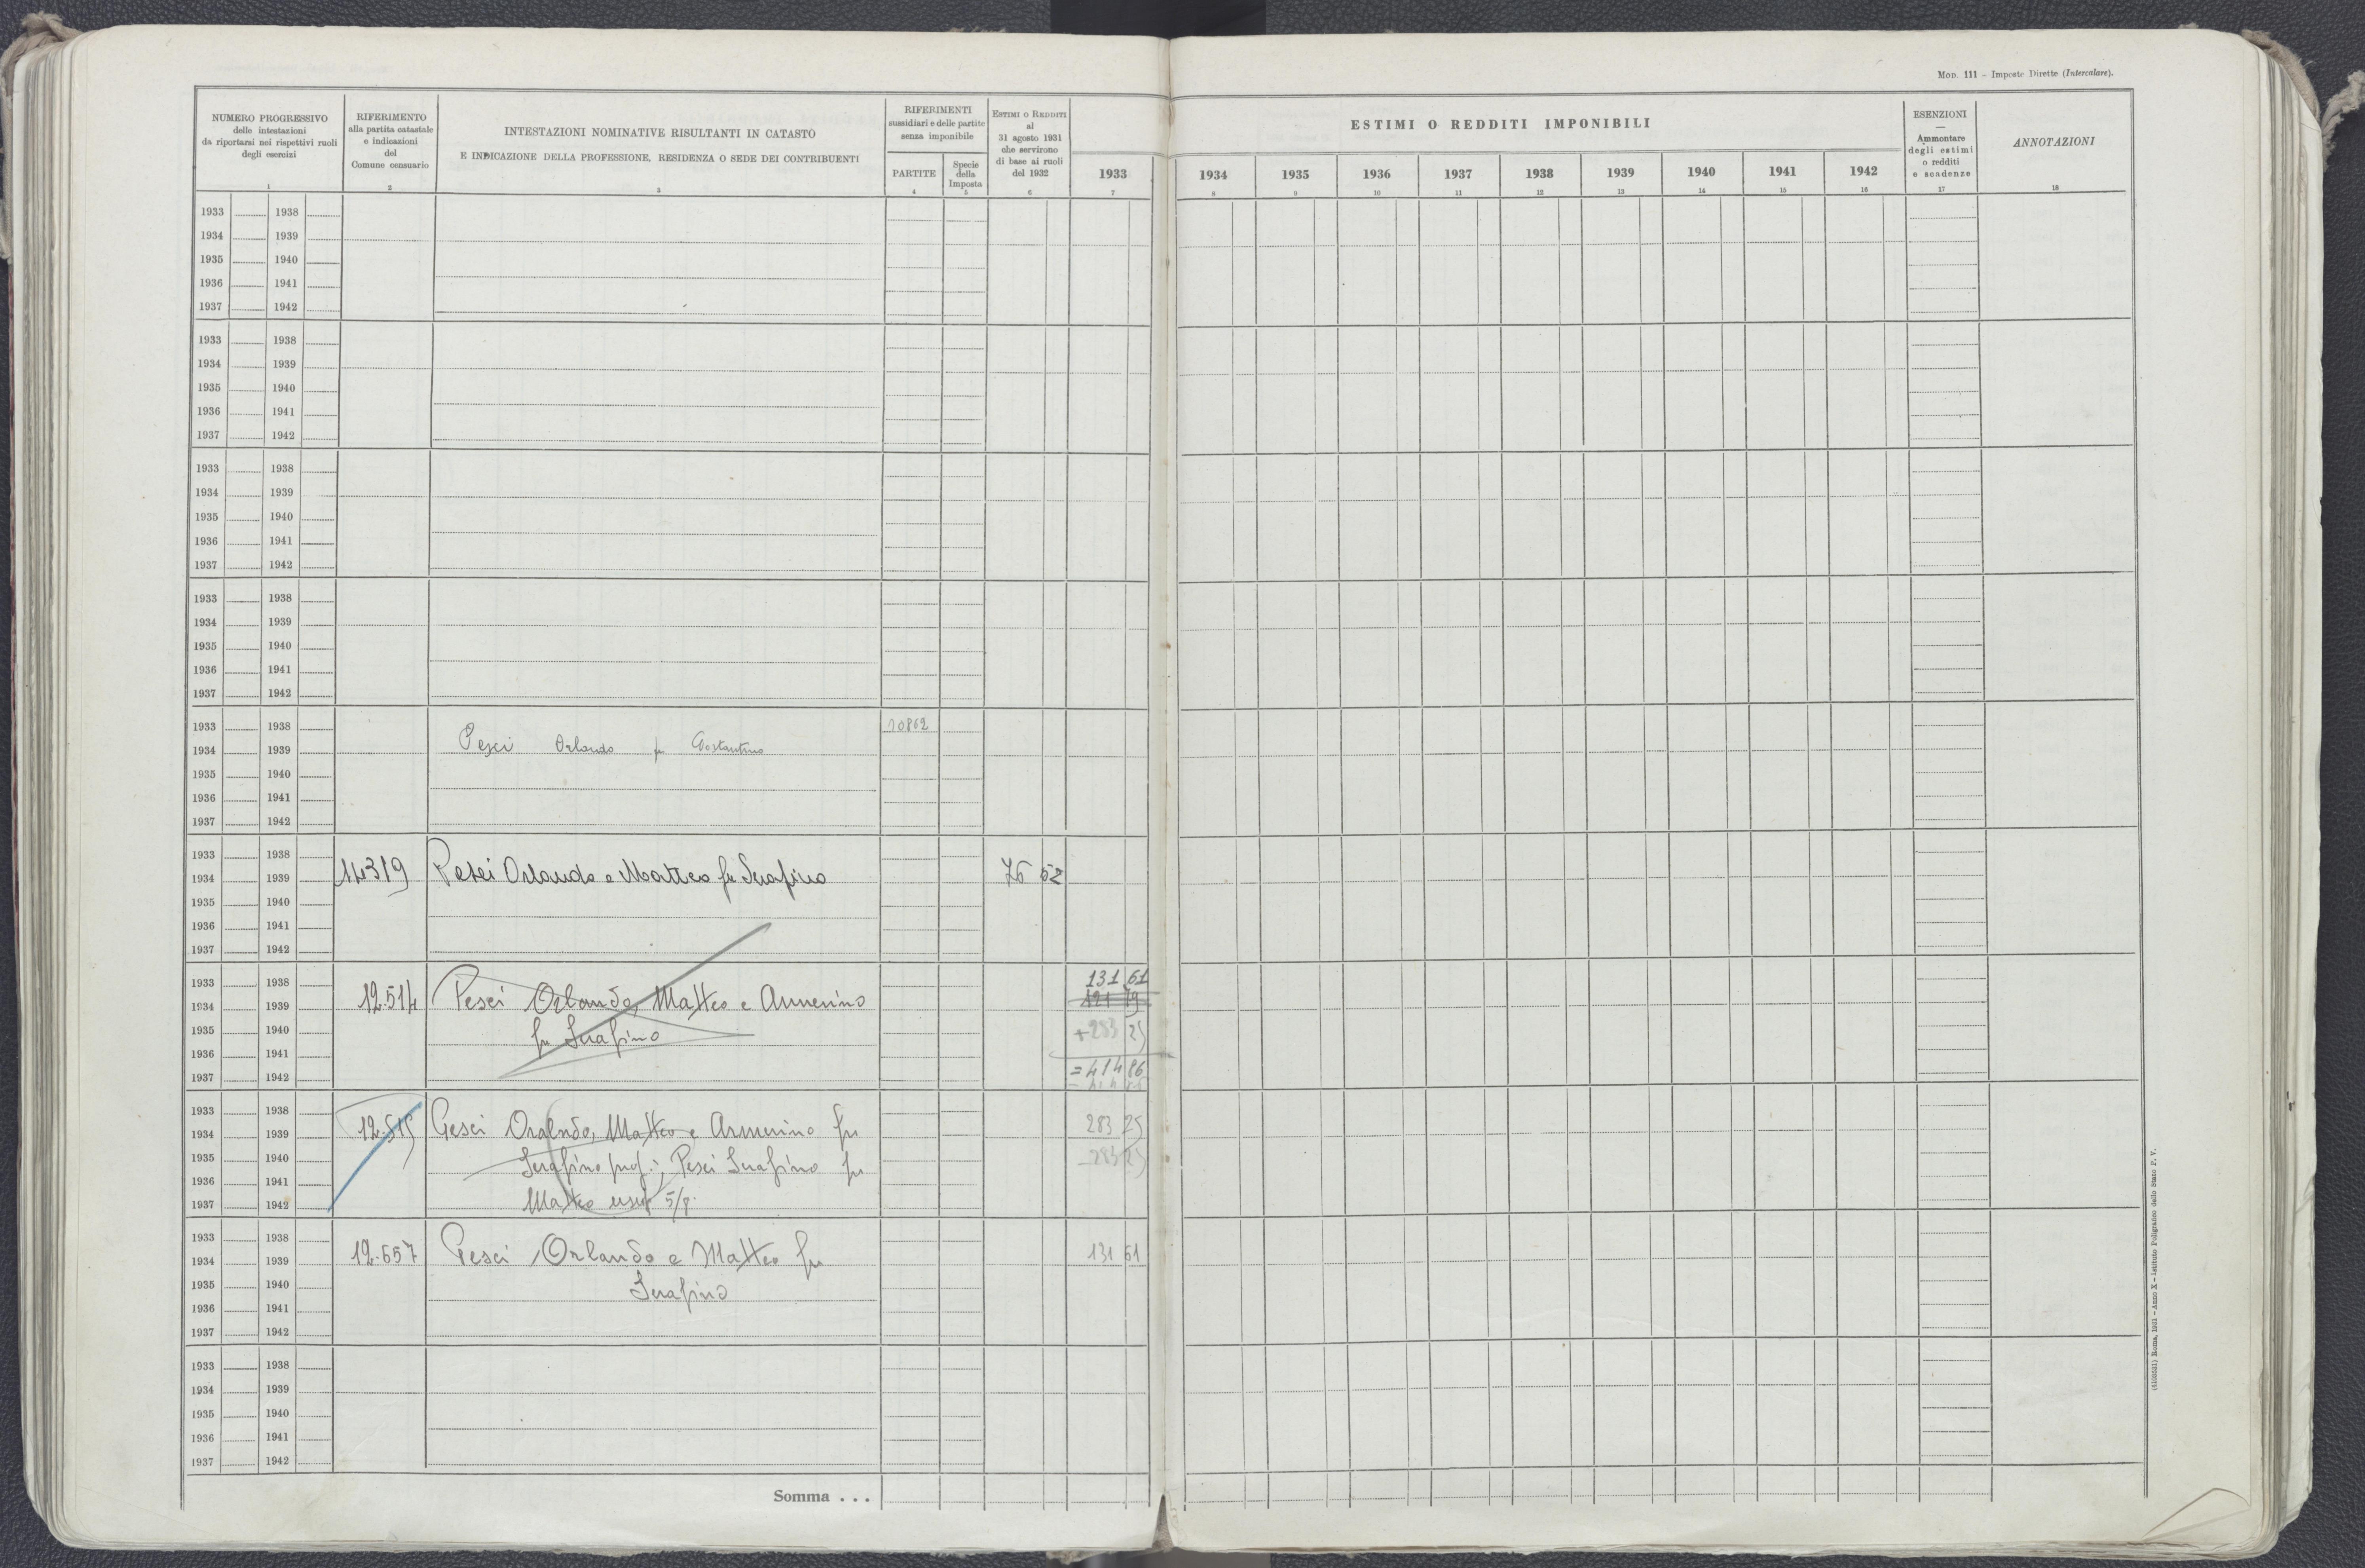 Mod. 111 - Imposte Dirette (Intercalare).
NUMERO PROGRESSIVO
delle intestazioni
da riportarsi nei rispettivi ruoli
degli esercizi
1
RIFERIMENTO
alla partita catastale
e indicazioni
del
Comune censuario
2
INTESTAZIONI NOMINATIVE RISULTANTI IN CATASTO
E INDICAZIONE DELLA PROFESSIONE, RESIDENZA O SEDE DEI CONTRIBUENTI
3
RIFERIMENTI
sussidiari e delle partite
senza imponibile
PARTITE
4
Specie
della
Imposta
5
ESTIMI O REDDITI
al
31 agosto 1931
che servirono
di base ai ruoli
del 1932
6
ESTIMI O REDDITI IMPONIBILI
1933 1934 1935 1936 1937 1938 1939 1940 1941 1942
7 8 9 10 11 12 13 14 15 16
ESENZIONI
—
Ammontare
degli estimi
o redditi
e scadenze
17
ANNOTAZIONI
18
1933 1938
1934 1939
1935 1940
1936 1941
1937 1942
1933 1938
1934 1939
1935 1940
1936 1941
1937 1942
1933 1938
1934 1939
1935 1940
1936 1941
1937 1942
1933 1938
1934 1939
1935 1940
1936 1941
1937 1942
1933 1938 10862
1934 1939 Pesci Orlando fu Costantino
1935 1940
1936 1941
1937 1942
1933 1938
1934 1939 14319 Pesei Orlando e Matteo fu Serafino 76 52
1935 1940
1936 1941
1937 1942
1933 1938 131 61
1934 1939 12.514 Pesci Orlando, Matteo e Armerino
1935 1940 fu Serafino +283 25
1936 1941
1937 1942 =414 86
1933 1938
1934 1939 12.515 Pesci Oralndo, Matteo e Armerino fu 283 25
1935 1940 Serafino prop.; Pesci Serafino fu -283 25
1936 1941
1937 1942 Matteo usuf. 5/8.
1933 1938
1934 1939 12.657 Pesci Orlando e Matteo fu 131 61
1935 1940 Serafino
1936 1941
1937 1942
1933 1938
1934 1939
1935 1940
1936 1941
1937 1942
Somma . . .
Roma, 1931 - Anno X - Istituto Poligrafico dello Stato P. V.